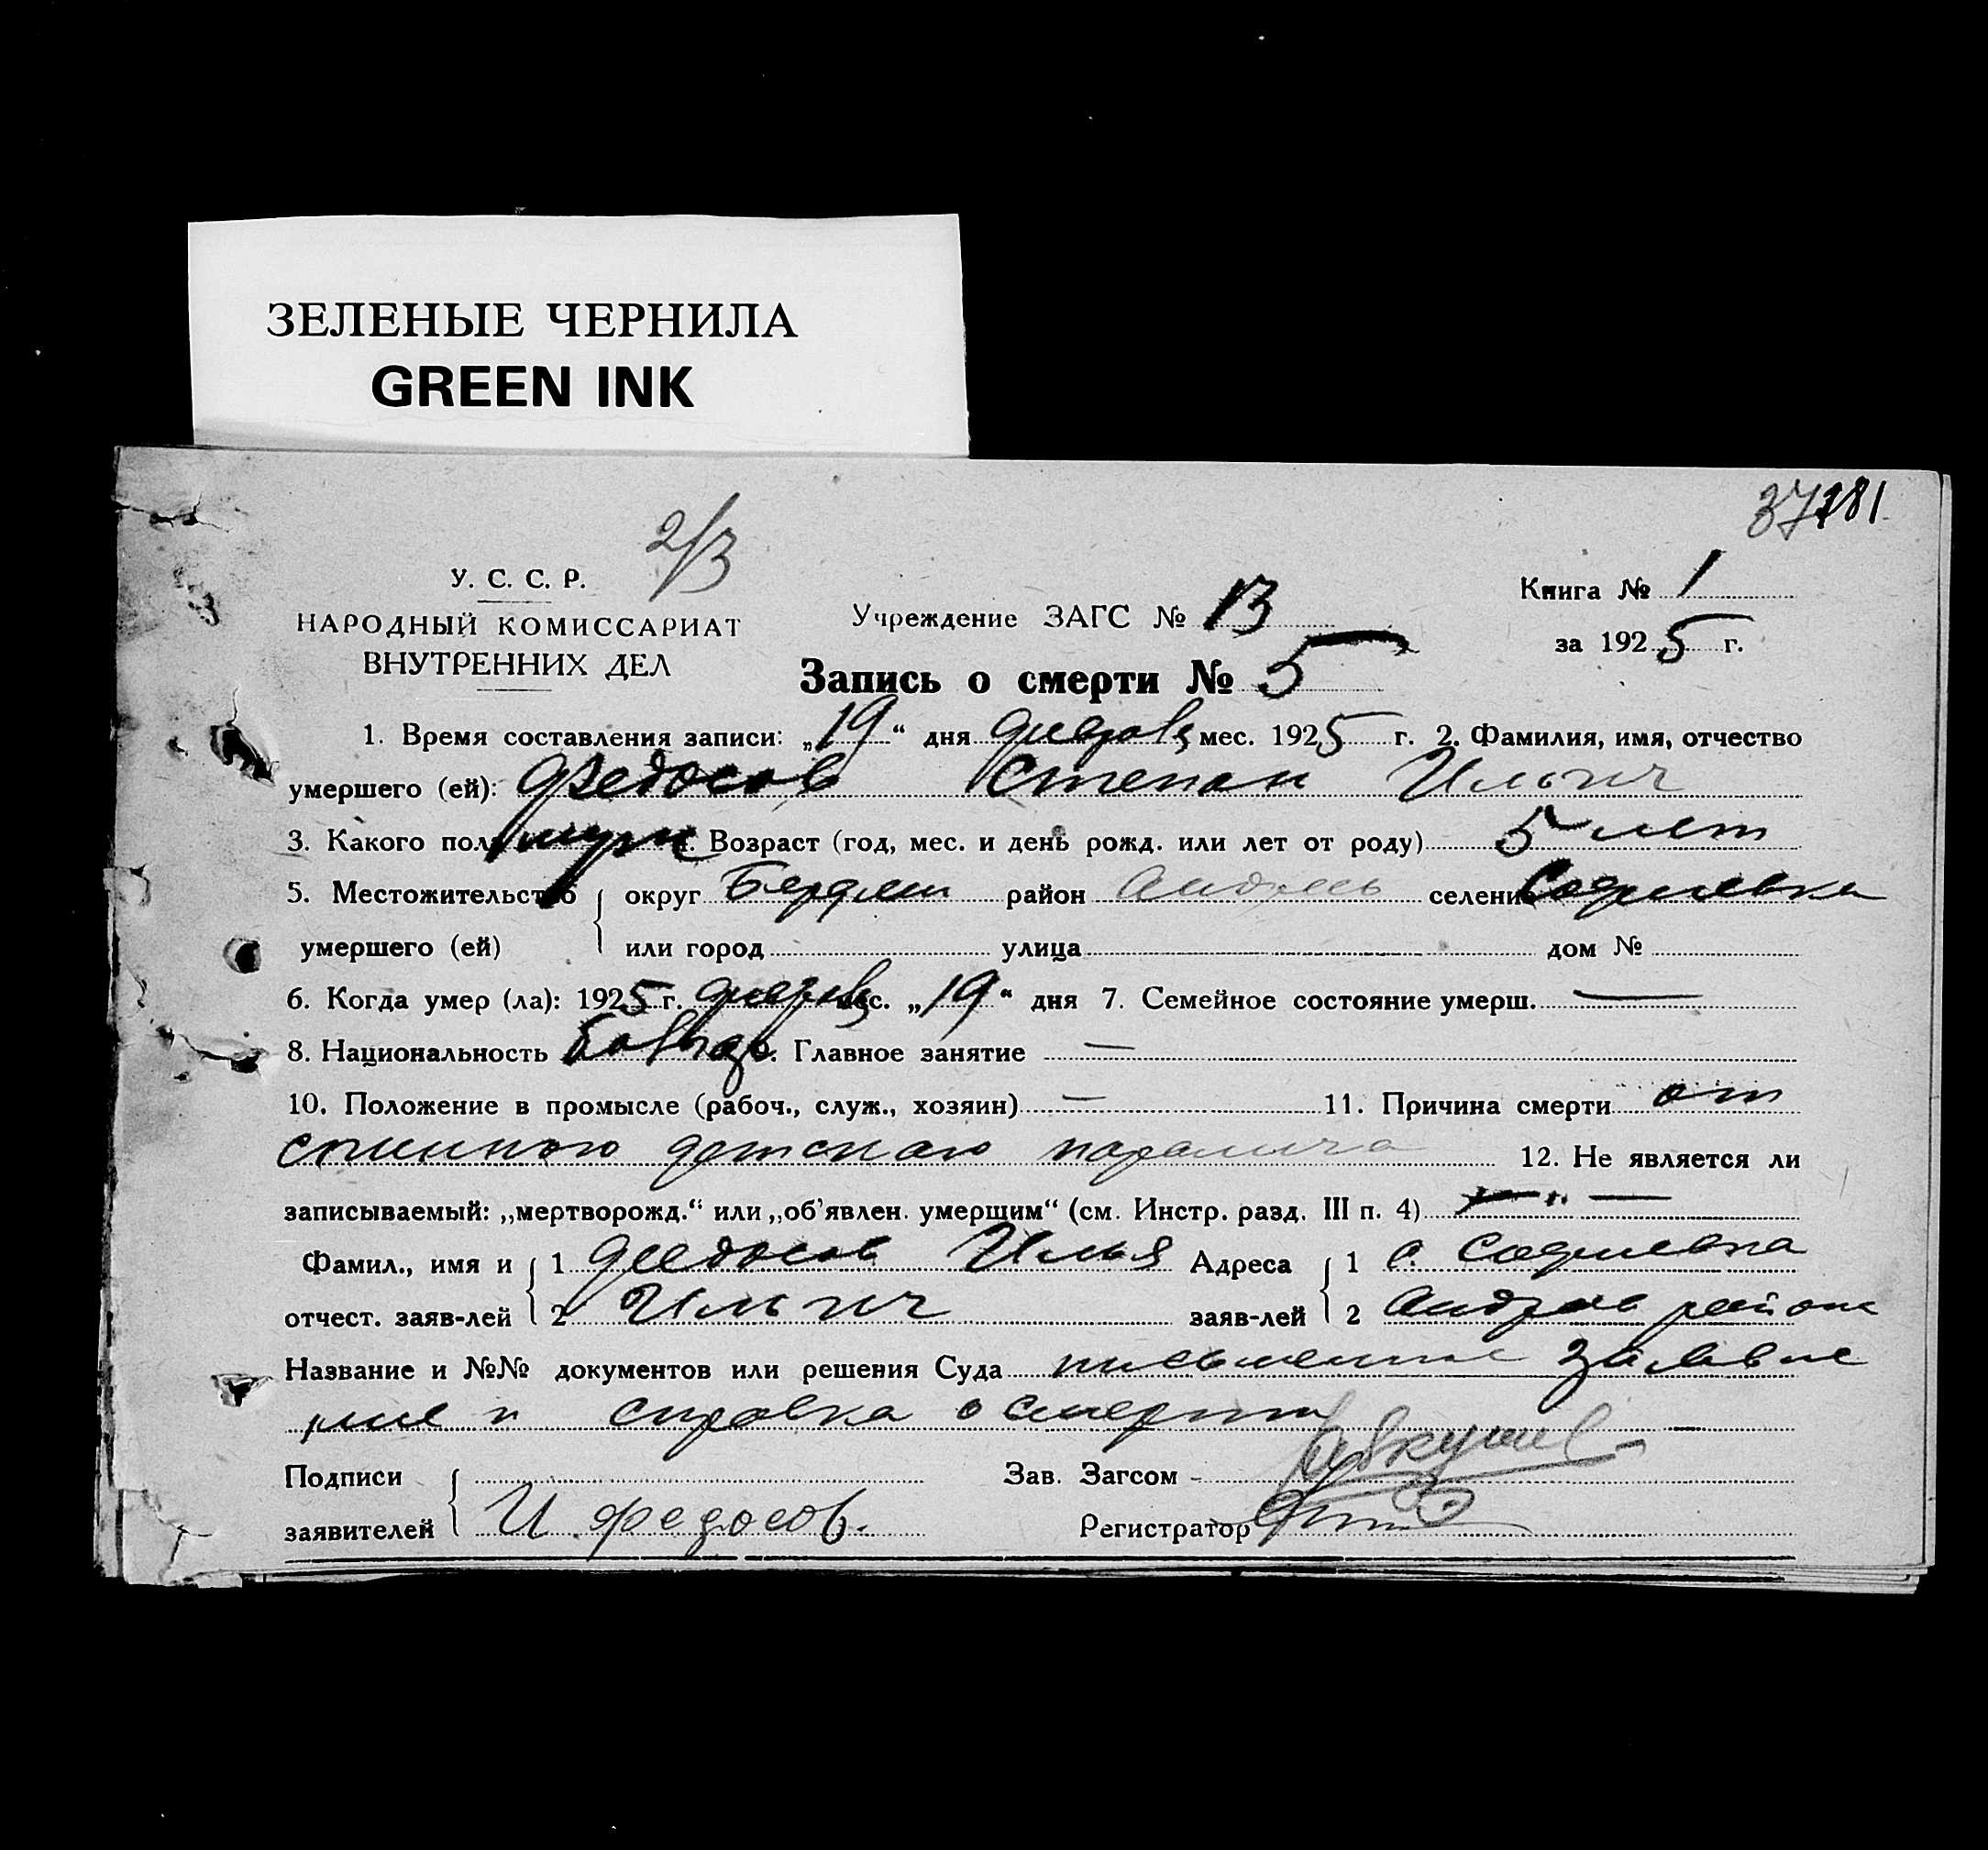 ЗЕЛЕНЫЕ ЧЕРНИЛА
GREEN INK
37 181
2/3
У. С. С. Р.
НАРОДНЫЙ КОМИССАРИАТ
ВНУТРЕННИХ ДЕЛ
Учреждение ЗАГС № 13
Книга № 1
за 1925 г.
Запись о смерти № 5
1. Время составления записи: „19“ дня февр мес. 1925 г. 2. Фамилия, имя, отчество
умершего (ей): Федосов Степан Ильич
3. Какого пол муж Возраст (год, мес. и день рожд. или лет от роду) 5 лет
5. Местожительство округ Бердян район Андреев селение Софиевка
умершего (ей) или город улица дом №
6. Когда умер (ла): 1925 г. февр мес. „19“ дня 7. Семейное состояние умерш. —
8. Национальность 9. Главное занятие —
10. Положение в промысле (рабоч., служ., хозяин) — 11. Причина смерти от
спинного детского паралича 12. Не является ли
записываемый: „мертворожд.“ или „об’явлен. умершим“ (см. Инстр. разд. III п. 4) — „ —
Фамил., имя и 1 Федосов Илья Адреса 1 с. Софиевка
отчест. заяв-лей 2 Ильич заяв-лей 2 Андреев района
Название и №№ документов или решения Суда письменное заявле
ние и справка о смерти
Подписи Зав. Загсом
заявителей И. Федосов. Регистратор